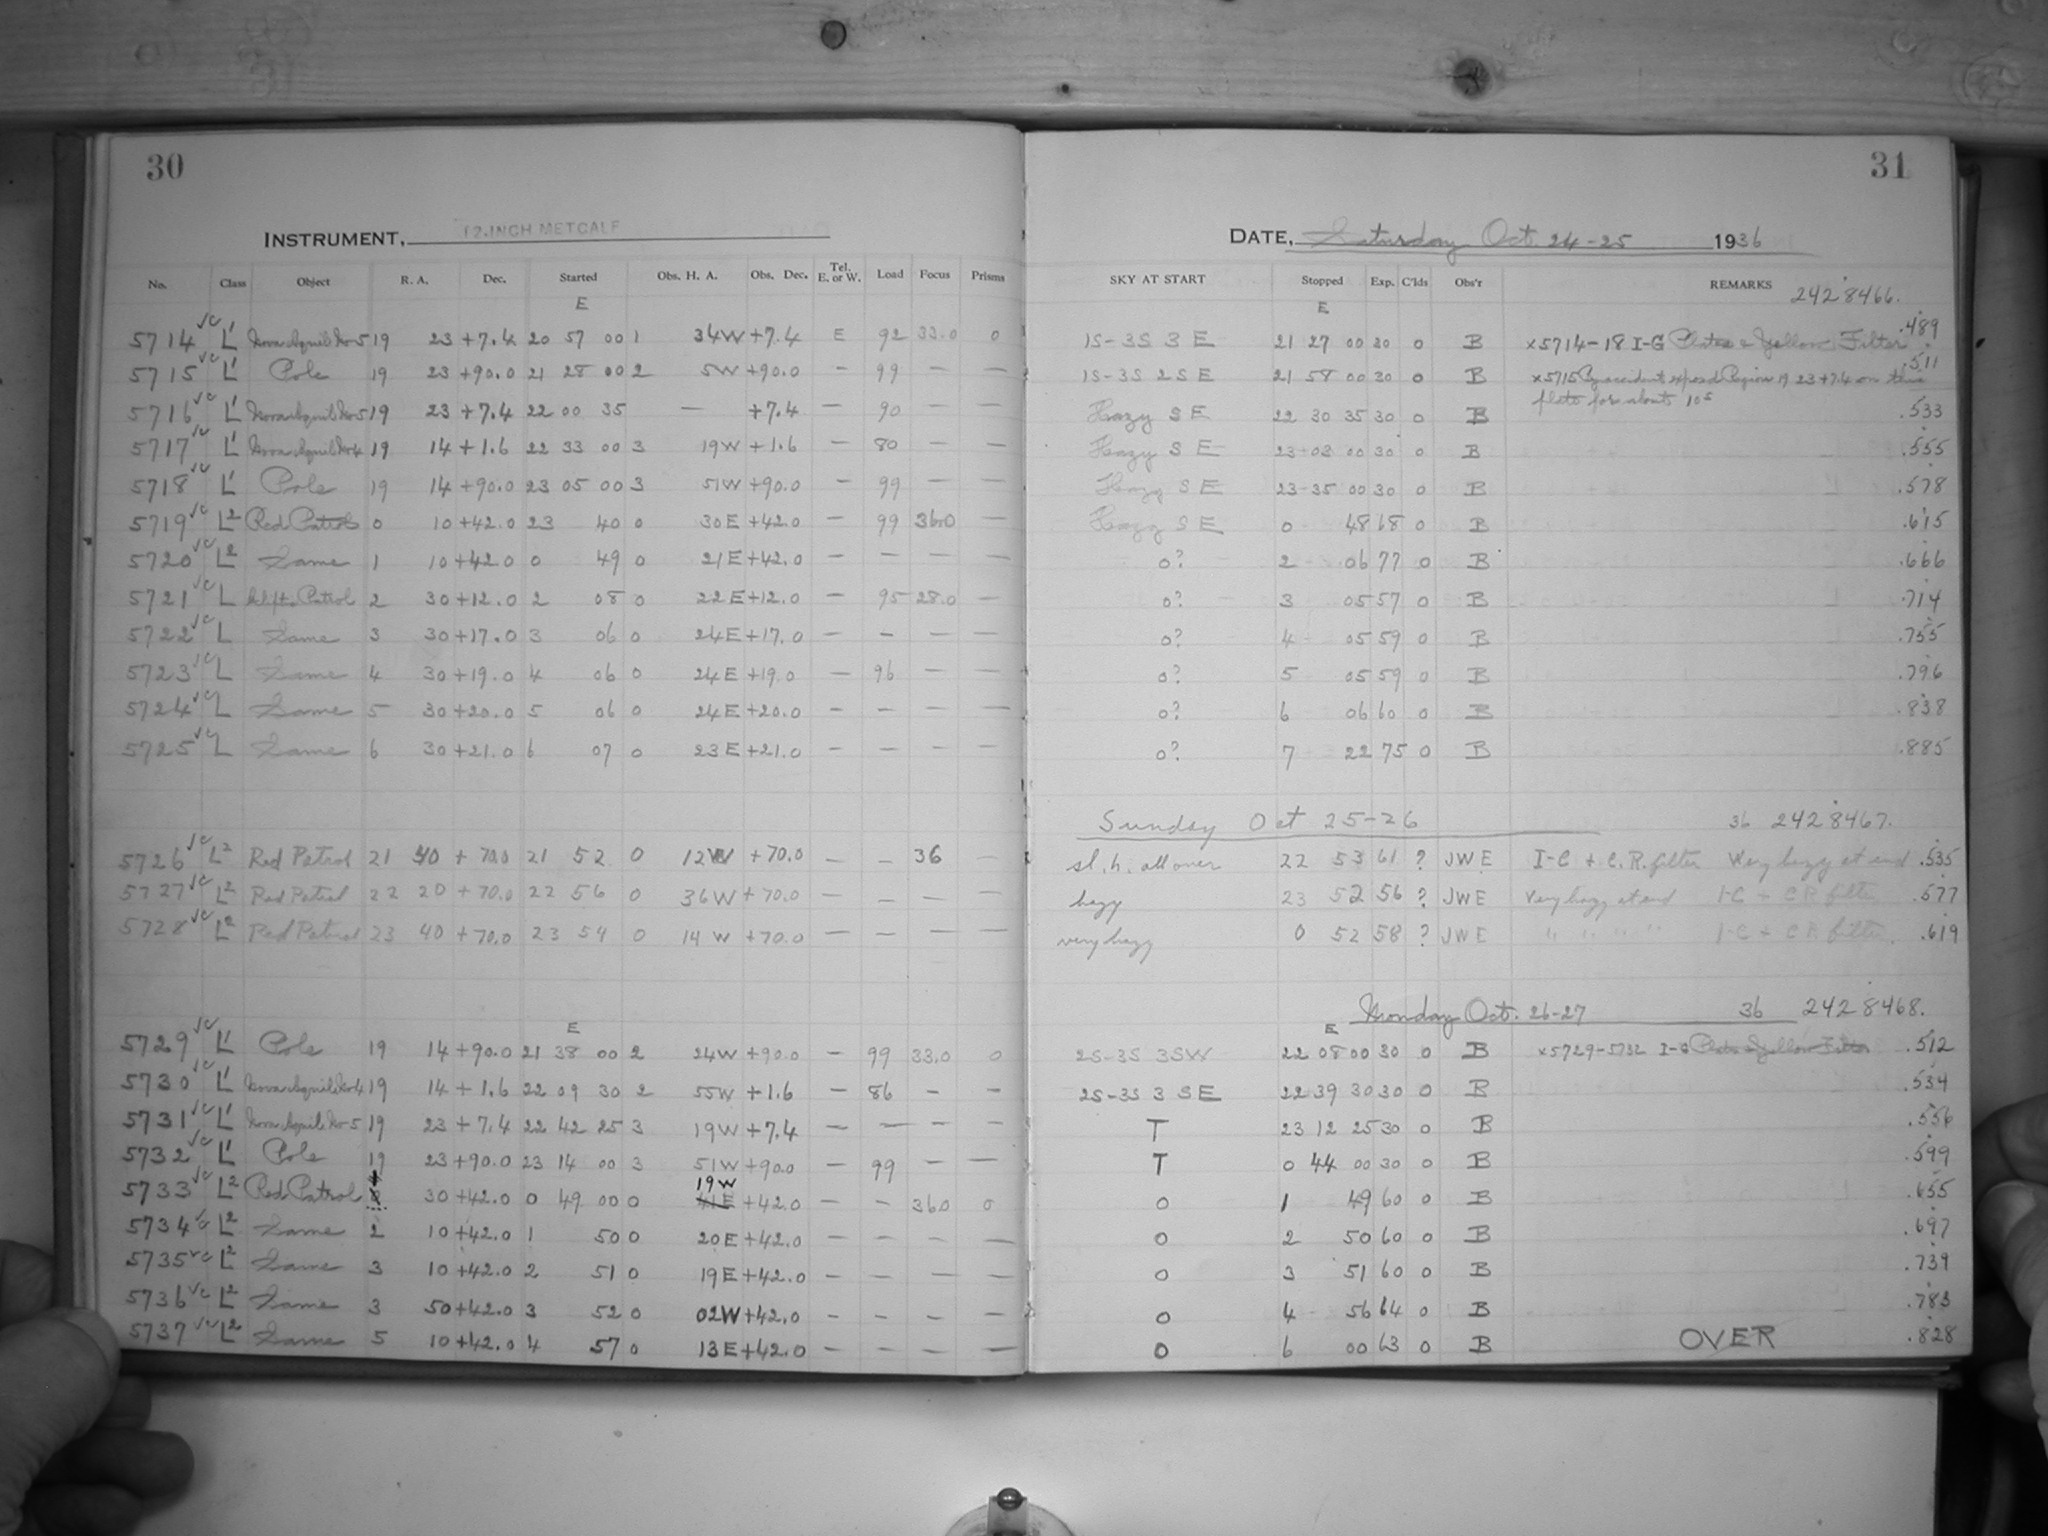 30
INSTRUMENT, 12-INCH METCALF
No. Class Object R. A. Dec. Started Obs. H. A. Obs. Dec. Tel. E. or W. Load Focus Prisms
E
5714 L' Nova Aquil No 5 19 23 +7.4 20 57 00 1 34W +7.4 E 92 33.0 0
5715 L' Pole 19 23 +90.0 21 28 00 2 5W +90.0 — 99 — —
5716 L' Nova Aquil No 5 19 23 +7.4 22 00 35 — +7.4 — 90 — —
5717 L' Nova Aquil No 4 19 14 +1.6 22 33 00 3 19W +1.6 — 80 — —
5718 L' Pole 19 14 +90.0 23 05 00 3 51W +90.0 — 99 — —
5719 L² Red Patrol 0 10 +42.0 23 40 0 30E +42.0 — 99 36.0 —
5720 L² Same 1 10 +42.0 0 49 0 21E +42.0 — — — —
5721 L Patrol 2 30 +12.0 2 08 0 22E +12.0 — 95 28.0 —
5722 L Same 3 30 +17.0 3 06 0 24E +17.0 — — — —
5723 L Same 4 30 +19.0 4 06 0 24E +19.0 — 96 — —
5724 L Same 5 30 +20.0 5 06 0 24E +20.0 — — — —
5725 L Same 6 30 +21.0 6 07 0 23E +21.0 — — — —
5726 L² Red Patrol 21 40 +70.0 21 52 0 12W +70.0 — — 36 —
5727 L² Red Patrol 22 20 +70.0 22 56 0 36W +70.0 — — —
5728 L² Red Patrol 23 40 +70.0 23 54 0 14W +70.0 — — — —
E
5729 L' Pole 19 14 +90.0 21 38 00 2 24W +90.0 — 99 33.0 0
5730 L' Nova Aquil No 4 19 14 +1.6 22 09 30 2 55W +1.6 — 86 — —
5731 L' Nova Aquil No 5 19 23 +7.4 22 42 25 3 19W +7.4 — — — —
5732 L' Pole 19 23 +90.0 23 14 00 3 51W +90.0 — 99 — —
19W
5733 L² Red Patrol 30 +42.0 0 49 00 0 41E +42.0 — — 36.0 0
5734 L² Same 2 10 +42.0 1 50 0 20E +42.0 — — — —
5735 L² Same 3 10 +42.0 2 51 0 19E +42.0 — — — —
5736 L² Same 3 50 +42.0 3 52 0 02W +42.0 — — — —
5737 L² Same 5 10 +42.0 4 57 0 13E +42.0 — — — —
31
DATE, Saturday Oct. 24-25 1936
SKY AT START Stopped Exp. C'lds Obs'r REMARKS
E 2428466.
1S-3S 3 E 21 27 00 30 0 B x5714-18 I-G Plates & Yellow Filter .489
1S-3S 2 S E 21 58 00 30 0 B x5715 By accident exposed Region 19 23 +7.4 on this .511
plate for about 10s
Hazy S E 22 30 35 30 0 B .533
Hazy S E 23 03 00 30 0 B .555
Hazy S E 23 35 00 30 0 B .578
Hazy S E 0 48 68 0 B .615
0? 2 06 77 0 B .666
0? 3 05 57 0 B .714
0? 4 05 59 0 B .755
0? 5 05 59 0 B .796
0? 6 06 60 0 B .838
0? 7 22 75 0 B .885
Sunday Oct 25-26 36 2428467.
sl. h. all over 22 53 61 ? JWE I-C + C.R. filter Very hazy at end .535
hazy 23 52 56 ? JWE Very hazy at end I-C + C R filter .577
very hazy 0 52 58 ? JWE " " " " I-C + C R filter. .619
Monday Oct. 26-27 36 2428468.
E
2S-3S 3 SW 22 08 00 30 0 B x5729-5732 I-G Plate & Yellow Filter .512
2S-3S 3 S E 22 39 30 30 0 B .534
T 23 12 25 30 0 B .556
T 0 44 00 30 0 B .599
0 1 49 60 0 B .655
0 2 50 60 0 B .697
0 3 51 60 0 B .739
0 4 56 64 0 B .783
0 6 00 63 0 B OVER .828